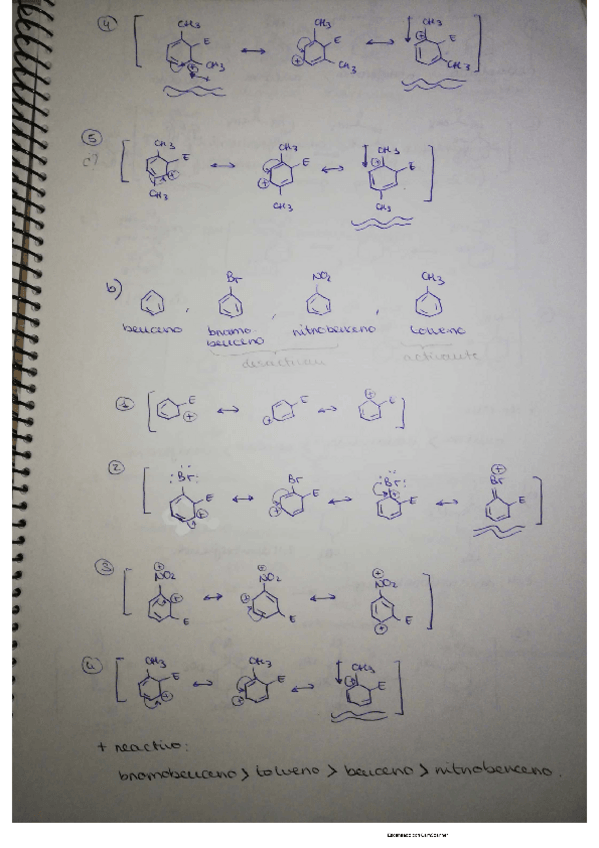 ④
CH3 E CH3 CH3 E CH3 CH3 E CH3
⑤
c?
CH3 E CH3 CH3 E CH3 CH3 E CH3
b)
Br NO2 CH3
benceno , bromo benceno , nitrobenceno , tolueno
desactivan activante
① E E E
② :Br: E Br E :Br: E Br E
③ NO2 E NO2 E NO2 E
④ CH3 E CH3 E CH3 E
+ reactivo:
bromobenceno > tolueno > benceno > nitrobenceno.
Escaneado con CamScanner